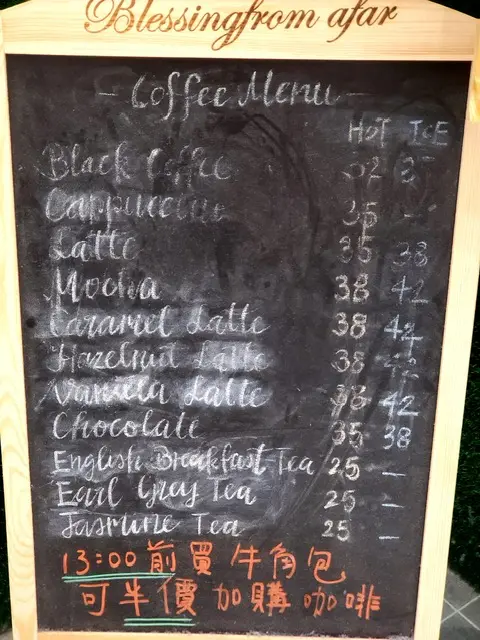 Blessingfrom afar
- Coffee Menu -
HOT ICE
Black Coffee 32 35
Cappuccino 35 -
Latte 35 38
Mocha 38 42
Caramel Latte 38 42
Hazelnut Latte 38 42
Vanilla Latte 38 42
Chocolate 35 38
English Breakfast Tea 25 -
Earl Grey Tea 25 -
Jasmine Tea 25 -
13:00前買牛角包
可半價加購咖啡